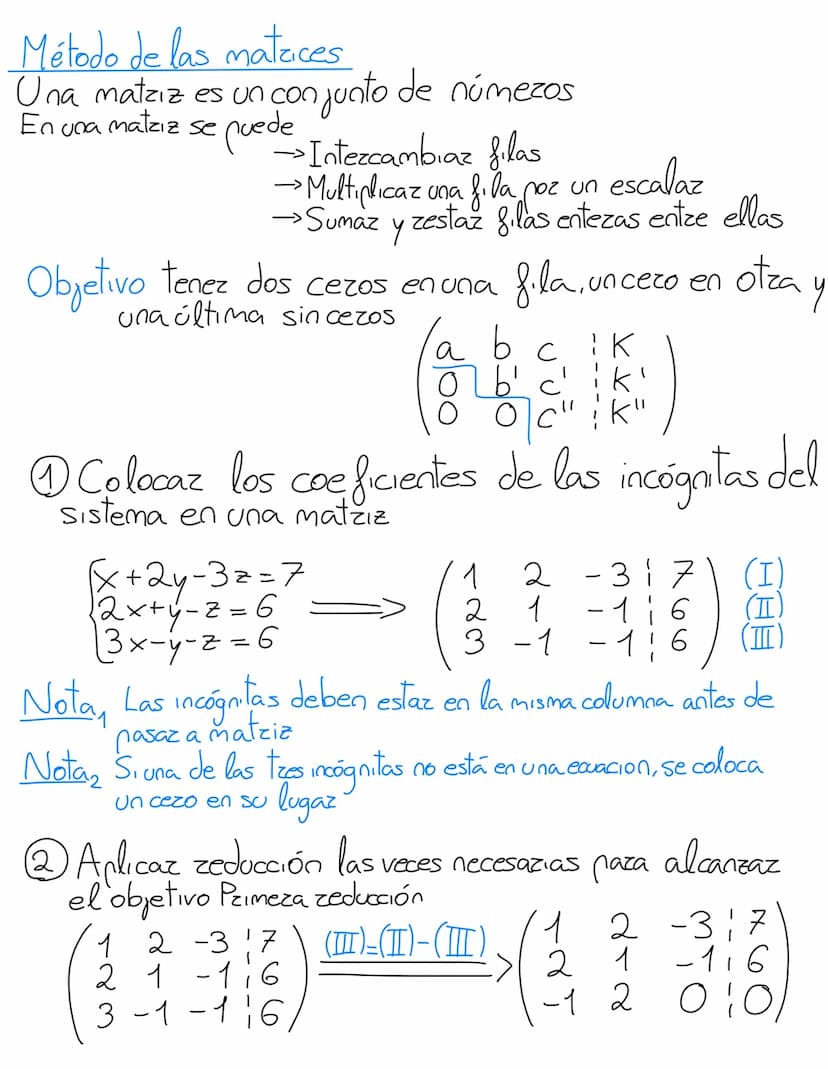 Método de las matrices
Una matriz es un conjunto de números
En una matriz se puede
→Intercambiar filas
→Multiplicar una fila por un escalar
→Sumar y restar filas enteras entre ellas
Objetivo tener dos ceros en una fila, un cero en otra y
una última sin ceros
a b c ¦ K
0 b' c' ¦ K'
0 0 c'' ¦ K''
① Colocar los coeficientes de las incógnitas del
sistema en una matriz
x+2y-3z=7 ⟹ 1 2 -3 ¦ 7 (I)
2x+y-z=6 2 1 -1 ¦ 6 (II)
3x-y-z=6 3 -1 -1 ¦ 6 (III)
Nota₁ Las incógnitas deben estar en la misma columna antes de
pasar a matriz
Nota₂ Si una de las tres incógnitas no está en una ecuacion, se coloca
un cero en su lugar
② Aplicar reducción las veces necesarias para alcanzar
el objetivo Primera reducción
1 2 -3 ¦ 7 (III)=(II)-(III) 1 2 -3 ¦ 7
2 1 -1 ¦ 6 ⟹ 2 1 -1 ¦ 6
3 -1 -1 ¦ 6 -1 2 0 ¦ 0